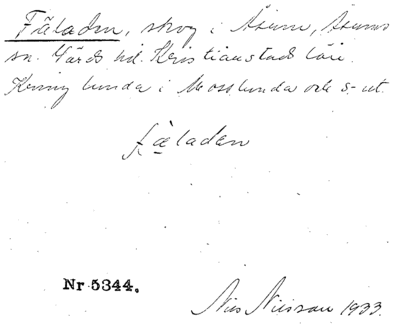 Fäladen, skog i Åsum, Åsums
sn. Gärds hd. Kristianstads län.
Kring lunda i Mosslunda och s-ut.
fæ̀laden
Nr 5344.
Nils Nilsson 1933.